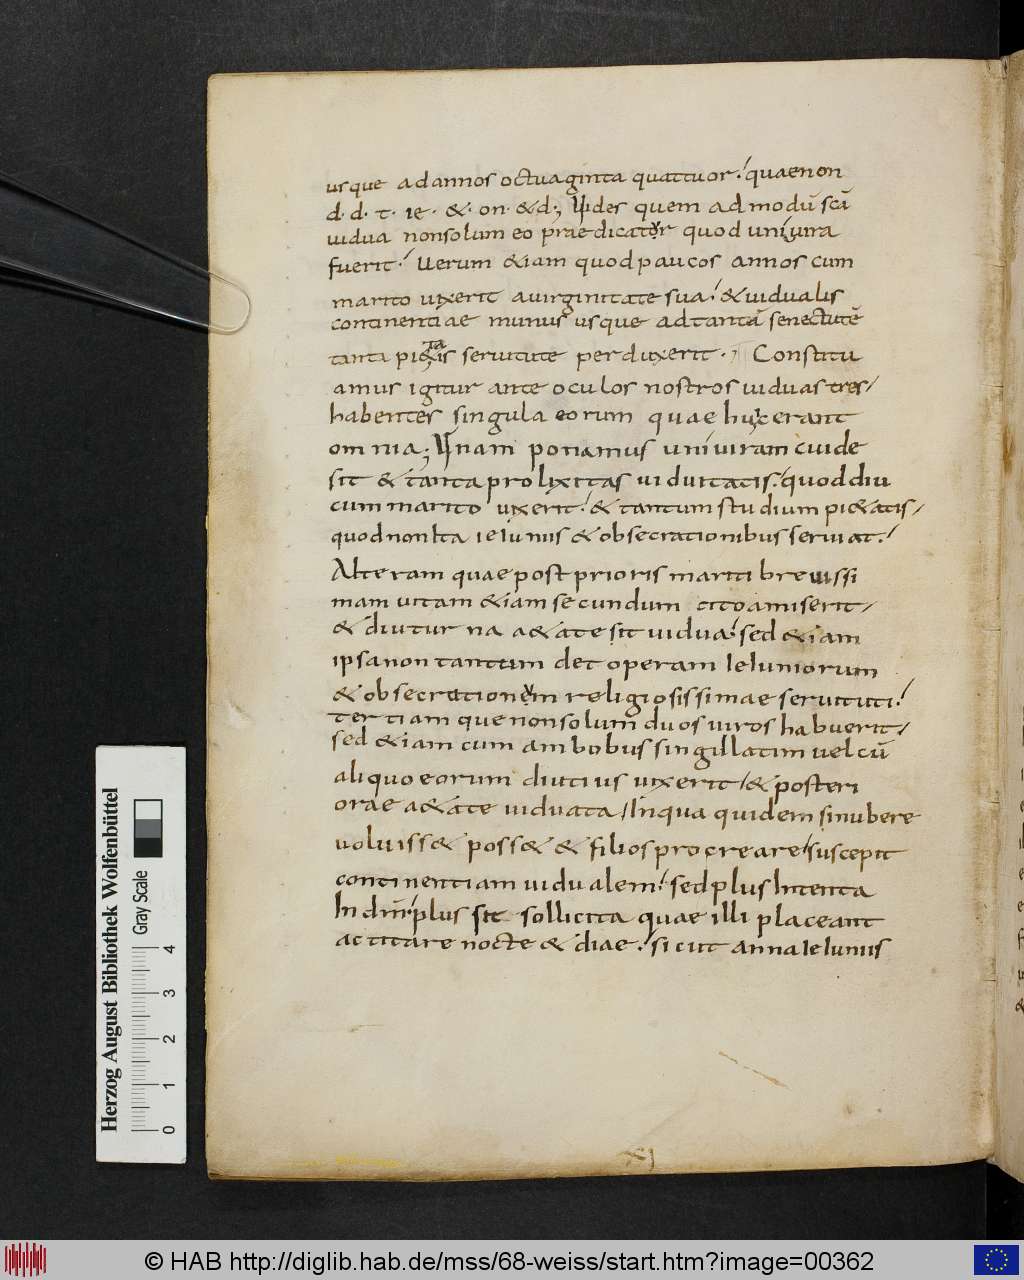 usque ad annos octuaginta quattuor. quae non
d. d. t. ie. &. on. & d; Uides quem ad modū scā
uidua non solum eo praedicatur quod uniuira
fuerit. Uerum &iam quod paucos annos cum
marito uixerit a uirginitate sua. & uidualis
continentiae munus usque ad tantā senectutē
tanta pi&atis seruitute perduxerit. Constitu
amus igitur ante oculos nostros uiduas tres
habentes singula eorum quae hu erant
omnia; Unam ponamus uniuiram cui de
sit & tanta prolixitas uiduitatis. quod diu
cum marito uixerit. & tantum studium pi&atis
quod non Ita ieiuniis & obsecrationibus seruiat.
Alteram quae post prioris mariti breuissi
mam uitam &iam secundum cito amiserit
& diuturna a&ate sit uidua. sed &iam
ipsa non tantum det operam Ieiuniorum
& obsecrationum religiosissimae seruituti.
tertiam que non solum duos uiros habuerit
sed &iam cum ambobus singillatim uel cū
aliquo eorum diutius uixerit & posteri
orae a&ate uiduata Inqua quidem si nubere
uoluiss& poss& & filios procreare suscepit
continentiam uidualem. sed plus Intenta
In dnm plus sit sollicita quae illi placeant
actitare nocte & diae. sicut anna Ieiuniis
XI
Herzog August Bibliothek Wolfenbüttel
Gray Scale
0 1 2 3 4
© HAB http://diglib.hab.de/mss/68-weiss/start.htm?image=00362